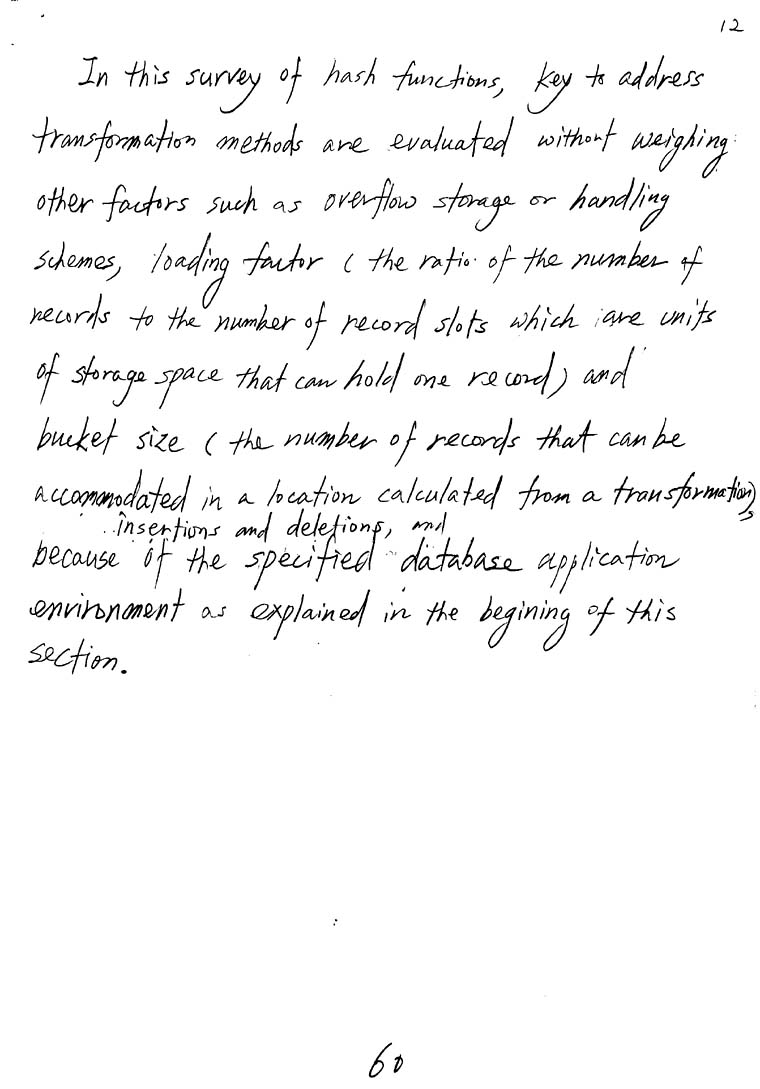 12
In this survey of hash functions, key to address
transformation methods are evaluated without weighing
other factors such as overflow storage or handling
schemes, loading factor ( the ratio of the number of
records to the number of record slots which are units
of storage space that can hold one record) and
bucket size ( the number of records that can be
accommodated in a location calculated from a transformation),
insertions and deletions, and
because of the specified database application
environment as explained in the begining of this
section.
60